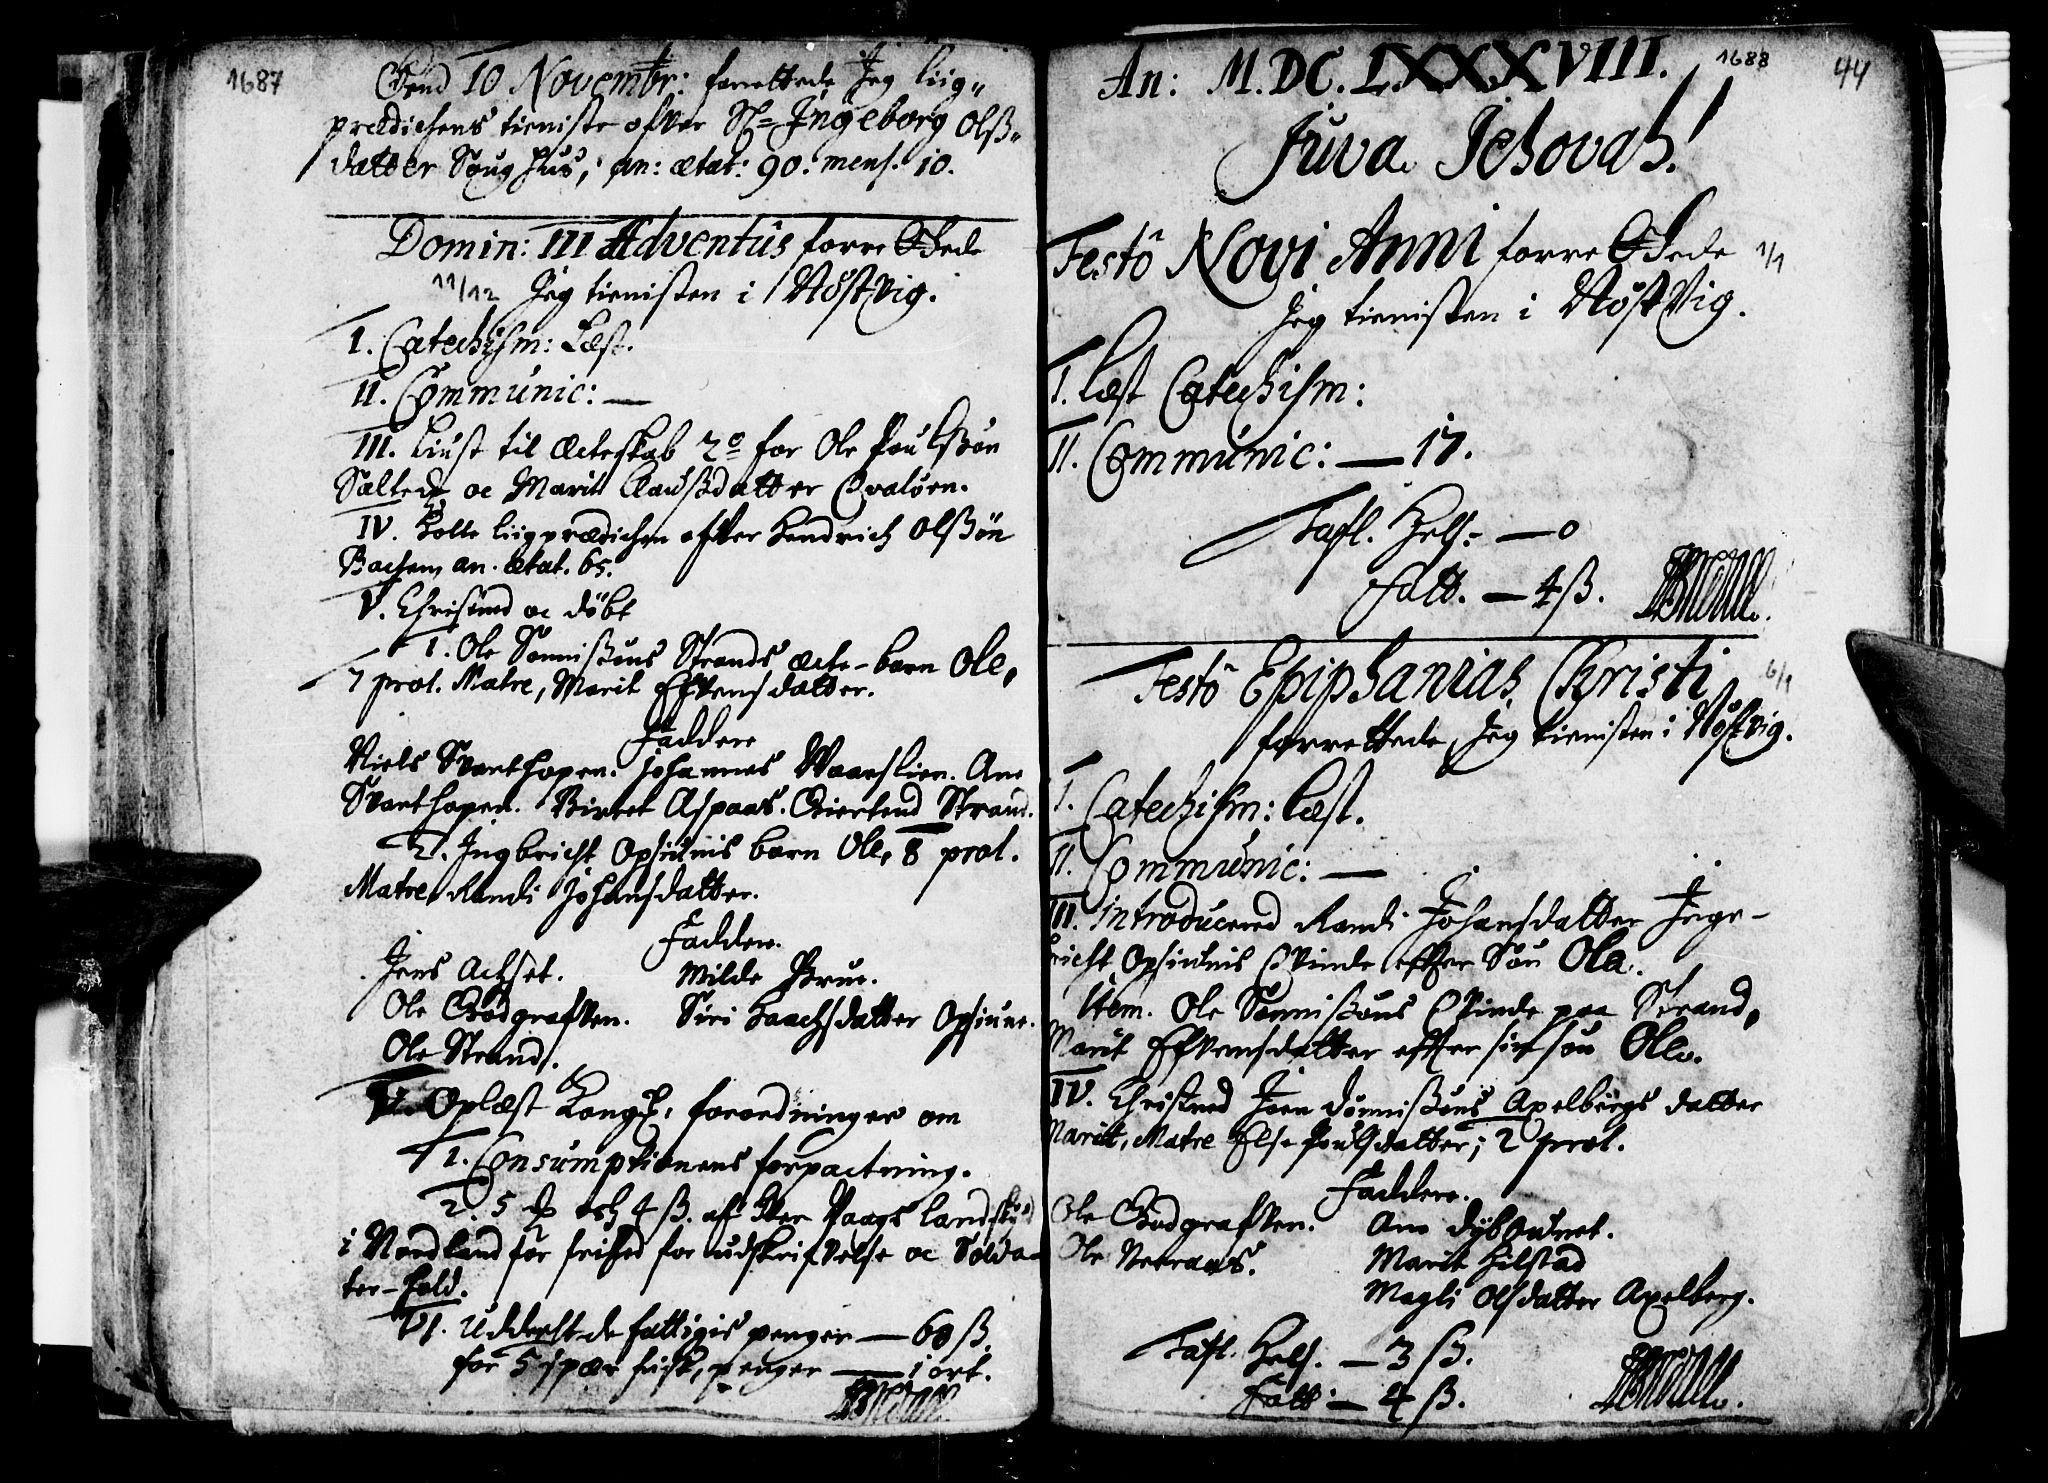 1687
Dend 10 Novembr: forrettede Jeg liig„
prædichens tieniste ofver Sl= Ingeborg Olß„
datter Søug huus, an: ætat: 90. mens. 10.
Domin: III Adventûs forrettede
11/12 Jeg tienisten i Nöstvig.
I. Catechism: Læst.
II. Communic: —
III. Liust til Ecteskab 2o for Ole Poulssøn
Saltede oc Marit Clausdatter Qvaløen.
IV. Holte liigprædichen ofver Hendrich Olssøn
Bachen, an. ætat. 65.
V. Christned oc döbt
1. Ole Sonnissøns Strands ecte-barn Ole,
7 prol. Matre, Marit Efvensdatter.
Faddere
Niels Svarthopen. Johannes Waarslien. Ane
Svarthopen. Birtet Aspaas. Giertrud Strand.
2. Ingbricht Opsiunis barn Ole, 8 prol.
Matre, Randi Johansdatter.
Faddere.
Jens Achset. Milde Brue.
Ole Godgrafven. Siri Haachsdatter Opsiune.
Ole Strand.
VI. Oplæst Kongl: forordninger om
1. Consumptionens forpactning.
2. 5 och 4 ß. af hver Vaags Landskyld
i Nordland for frihed for udskrifvelse oc Solda-
ter-hold.
VI. Udderlt de fattigis penger — 68 ß.
for 5 spær fisk, penger — 1 ort.
An: M.DC.LXXXVIII. 1688 44
Juva Jehovah!
Festô Novi Anni forrettede 1/1
Jeg tienisten i Nöst Vig.
I. Læst Catechism:
II. Communic: — 17.
Tafl. Hels: — 0
Fatt. — 4 ß.
Festô Epiphanias Christi 6/1
forrettede Jeg tienisten i Nöstvig.
I. Catechism: Læst.
II. Communic: —
III. Introducered Randi Johansdatter Inge-
bricht Opsiunis Qvinde effter Søn Ole.
Item. Ole Sonnissøns Qvinde paa Strand,
Marit Efvensdatter effter sin søn Ole.
IV. Christned Joen Jönnissøns Apelbergs datter
Marit, Matre Else Poulsdatter; 2 prol.
Faddere.
Ole Godgrafven. Ane Dybodnet.
Ole Veeraas. Marit Hilstad
Magli Olsdatter Apelberg.
Tafl. Hels. — 3 ß.
Fatt: — 4 ß.